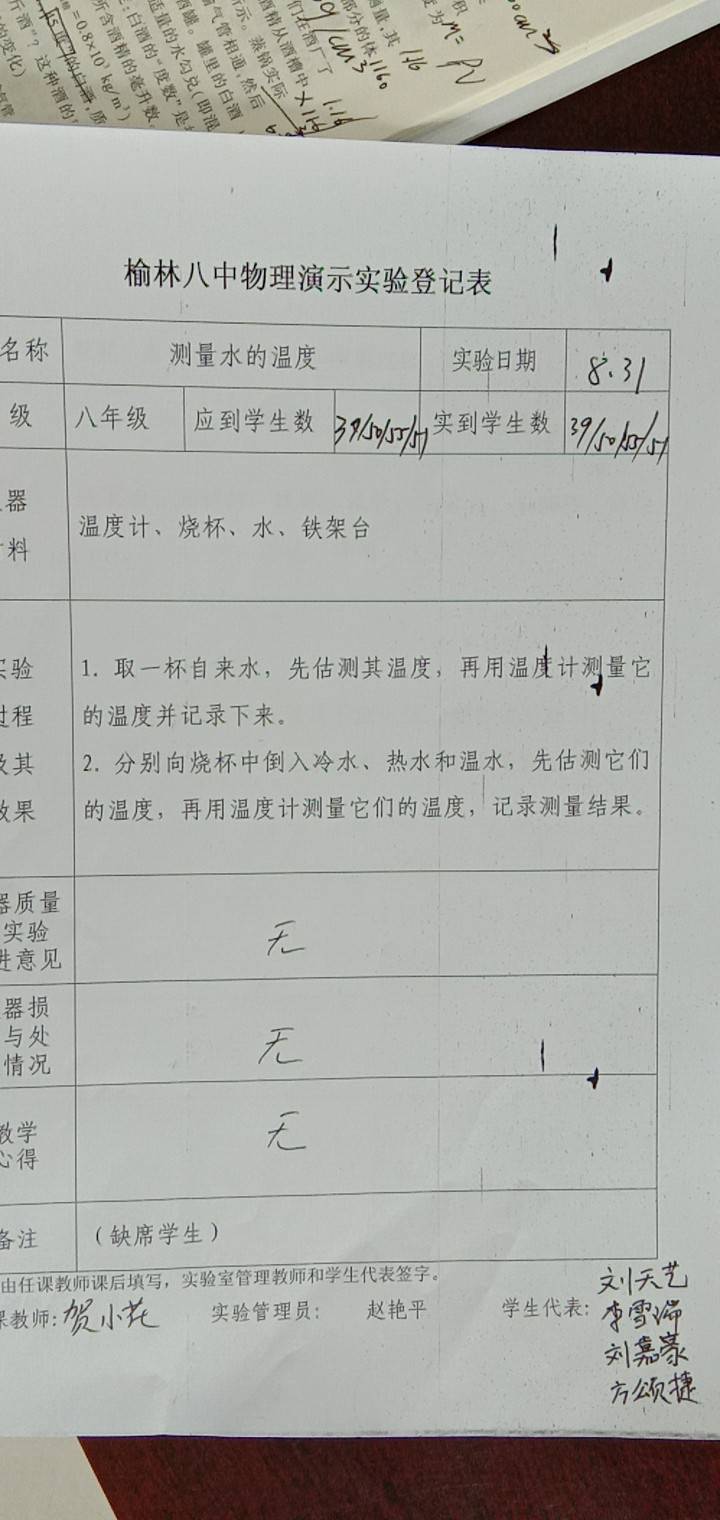 榆林八中物理演示实验登记表
名称 测量水的温度 实验日期 8.31
级 八年级 应到学生数 39/50/55/51 实到学生数 39/50/55/51
器
料
温度计、烧杯、水、铁架台
实验
过程
及其
效果
1. 取一杯自来水，先估测其温度，再用温度计测量它
的温度并记录下来。
2. 分别向烧杯中倒入冷水、热水和温水，先估测它们
的温度，再用温度计测量它们的温度，记录测量结果。
器质量
实验
进意见
无
器损
与处
情况
无
教学
心得
无
备注 （缺席学生）
由任课教师课后填写，实验室管理教师和学生代表签字。
课教师：贺小花 实验管理员： 赵艳平 学生代表：刘天艺
李雪瑞
刘嘉豪
方颂捷